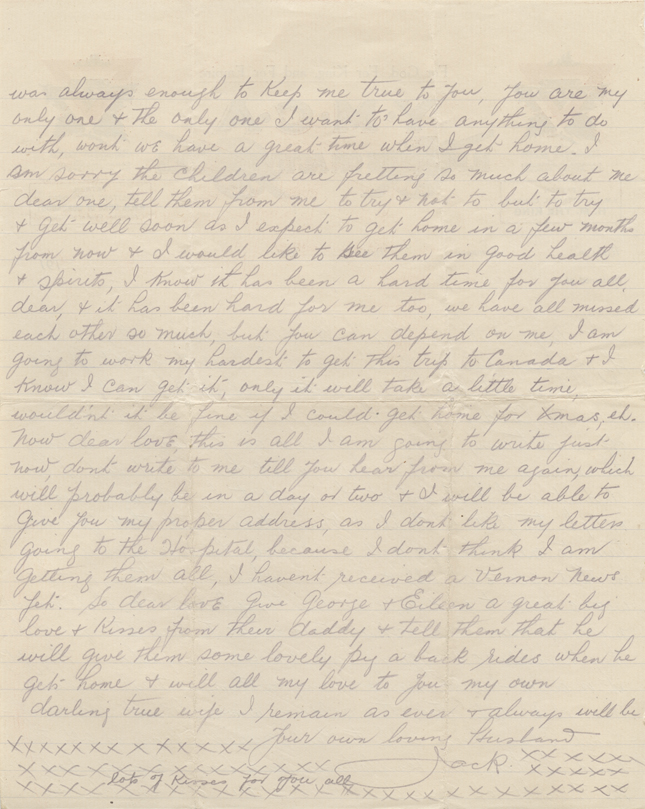 was always enough to keep me true to you, you are my
only one & the only one I want to have anything to do
with, wont we have a great time when I get home. I
am sorry the children are fretting so much about me
dear one, tell them from me to try & not to but to try
& get well soon as I expect to get home in a few months
from now & I would like to see them in good health
& spirits, I know it has been a hard time for you all,
dear, & it has been hard for me too, we have all missed
each other so much, but you can depend on me, I am
going to work my hardest to get this trip to Canada & I
know I can get it, only it will take a little time,
wouldn't it be fine if I could get home for Xmas, eh.
Now dear love, this is all I am going to write just
now, dont write to me till you hear from me again, which
will probably be in a day or two & I will be able to
give you my proper address, as I dont like my letters
going to the Hospital, because I dont think I am
getting them all, I havent received a Vernon News
yet. So dear love give George & Eileen a great big
love & kisses from their daddy & tell them that he
will give them some lovely pig a back rides when he
gets home & will all my love to you my own
darling true wife I remain as ever & always will be
Your own loving Husband
Jack.
x x x x x x x x x x x x x x x
lots of kisses for you all
x x x x x x x x x x x x x x x